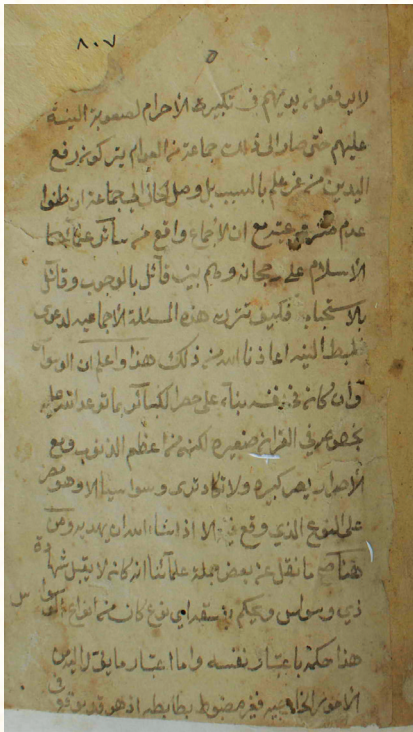 ٨٠٧
لا يرفعون يديهم في تكبيرة الاحرام لصعوبة النية
عليهم حتى صار الى ذلك جماعة من العوام يتركون رفع
اليدين من غير علم بالسبب بل وصل الحال الى جماعة ان ظنوا
عدم مع ان الاجماع واقع من سائر علماء
الاسلام على رجحانه وهم بين قائل بالوجوب وقائل
بالاستحباب فكيف تترك هذه المسئلة الاجماعيه لدعوى
ضبط النيه اعاذنا الله من ذلك هذا واعلم ان الوسواس
وان كان في نفسه بناء على حصر الكبائر بما توعد الله عليه
بخصوصه في القران صغيره لكنه من اعظم الذنوب ومع
الاصرار يصير كبيره ولا تكاد ترى وسواسيا الا وهو مصر
على النوع الذي وقع فيه الا اذا شاء الله ان يهديه ومن
هنا صح ما نقل عن بعض جملة علمائنا انه كان لا يقبل شهادة
ذي وسواس ويحكم بفسقه اي نوع كان من انواع الوسواس
هذا حكمه باعتبار نفسه واما اعتبار ما يؤل اليه من
الامور الخارجيه فغير مضبوط بضابطه اذ هو قد يوقع في